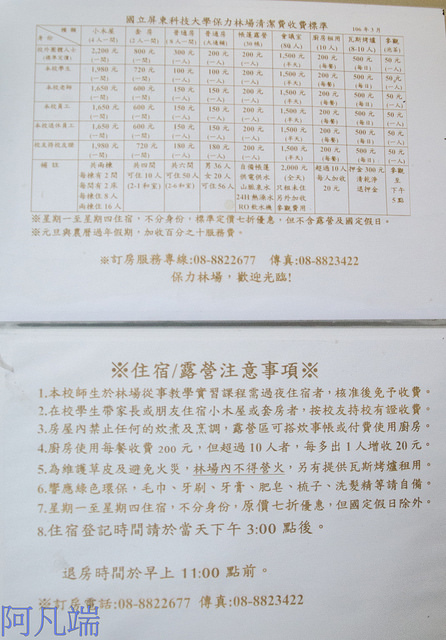 國立屏東科技大學保力林場清潔費收費標準
106年3月
種類 小木屋 套房 普通房 普通房 帳篷露營 會議室 廚房租用 瓦斯烤爐 參觀
身份 (4人一間) (2人一間) (8人一間) (大通鋪) (80人) (10人) (8-10人)
校外團體人士 2,200元 800元 300元 200元 200元 1,500元 200元 500元 50元
(標準定價) (一間) (一間) (一人) (一人) (半天) (每餐) (每日) (一人)
本校學生 1,980元 720元 180元 150元 1,500元 200元 500元 50元
(一間) (一間) (一人) (一人) (半天) (每餐) (每日) (一人)
本校老師 1,650元 600元 150元 150元 1,500元 200元 500元 50元
(一間) (一間) (一人) (一人) (半天) (每餐) (每日) (一人)
本校員工 1,650元 600元 150元 150元 1,500元 200元 500元 50元
(一間) (一間) (一人) (一人) (半天) (每餐) (每日) (一人)
本校退休員工 1,650元 600元 150元 1,500元 200元 500元 50元
(一間) (一間) (一人) (一人) (半天) (每餐) (每日) (一人)
校友持校友證 1,980元 720元 180元 180元 1,500元 200元 500元 50元
(一間) (一間) (一人) (一人) (半天) (每餐) (每日) (一人)
備註 共兩棟 共四間 共六間 男36人 自備帳篷 2,000元 超過10人 押金300元 參觀
每棟有2間 可住10人 可住50人 女20人 供電供水 (全天) 每人加收 清乾淨 至
每間有2床 (2-1和室) (2-6和室) 可住56人 山泉泉水 只租未住 20元 退押金 下午
每棟住8人 24H熱淋水 另外加收 5點
兩棟住16人 RO飲水機 參觀費用
※星期一至星期四住宿，不分身份，標準定價七折優惠，但不含露營及國定假日。
※元旦與農曆過年假期，加收百分之十服務費。
※訂房服務專線:08-8822677 傳真:08-8823422
保力林場，歡迎光臨!
※住宿/露營注意事項※
1.本校師生於林場從事教學實習課程需過夜住宿者，核准後免予收費。
2.在校學生帶家長或朋友住宿小木屋或套房者，按校友持校有證收費。
3.房屋內禁止任何的炊煮及烹調，露營區可搭炊事帳或付費使用廚房。
4.廚房使用每餐收費200元，但超過10人者，每多出1人增收20元。
5.為維護草皮及避免火災，林場內不得營火，另有提供瓦斯烤爐租用。
6.響應綠色環保，毛巾、牙刷、牙膏、肥皂、梳子、洗髮精等請自備。
7.星期一至星期四住宿，不分身份，原價七折優惠，但國定假日除外。
8.住宿登記時間請於當天下午3:00點後。
退房時間於早上11:00點前。
※訂房電話:08-8822677 傳真:08-8823422
阿凡端